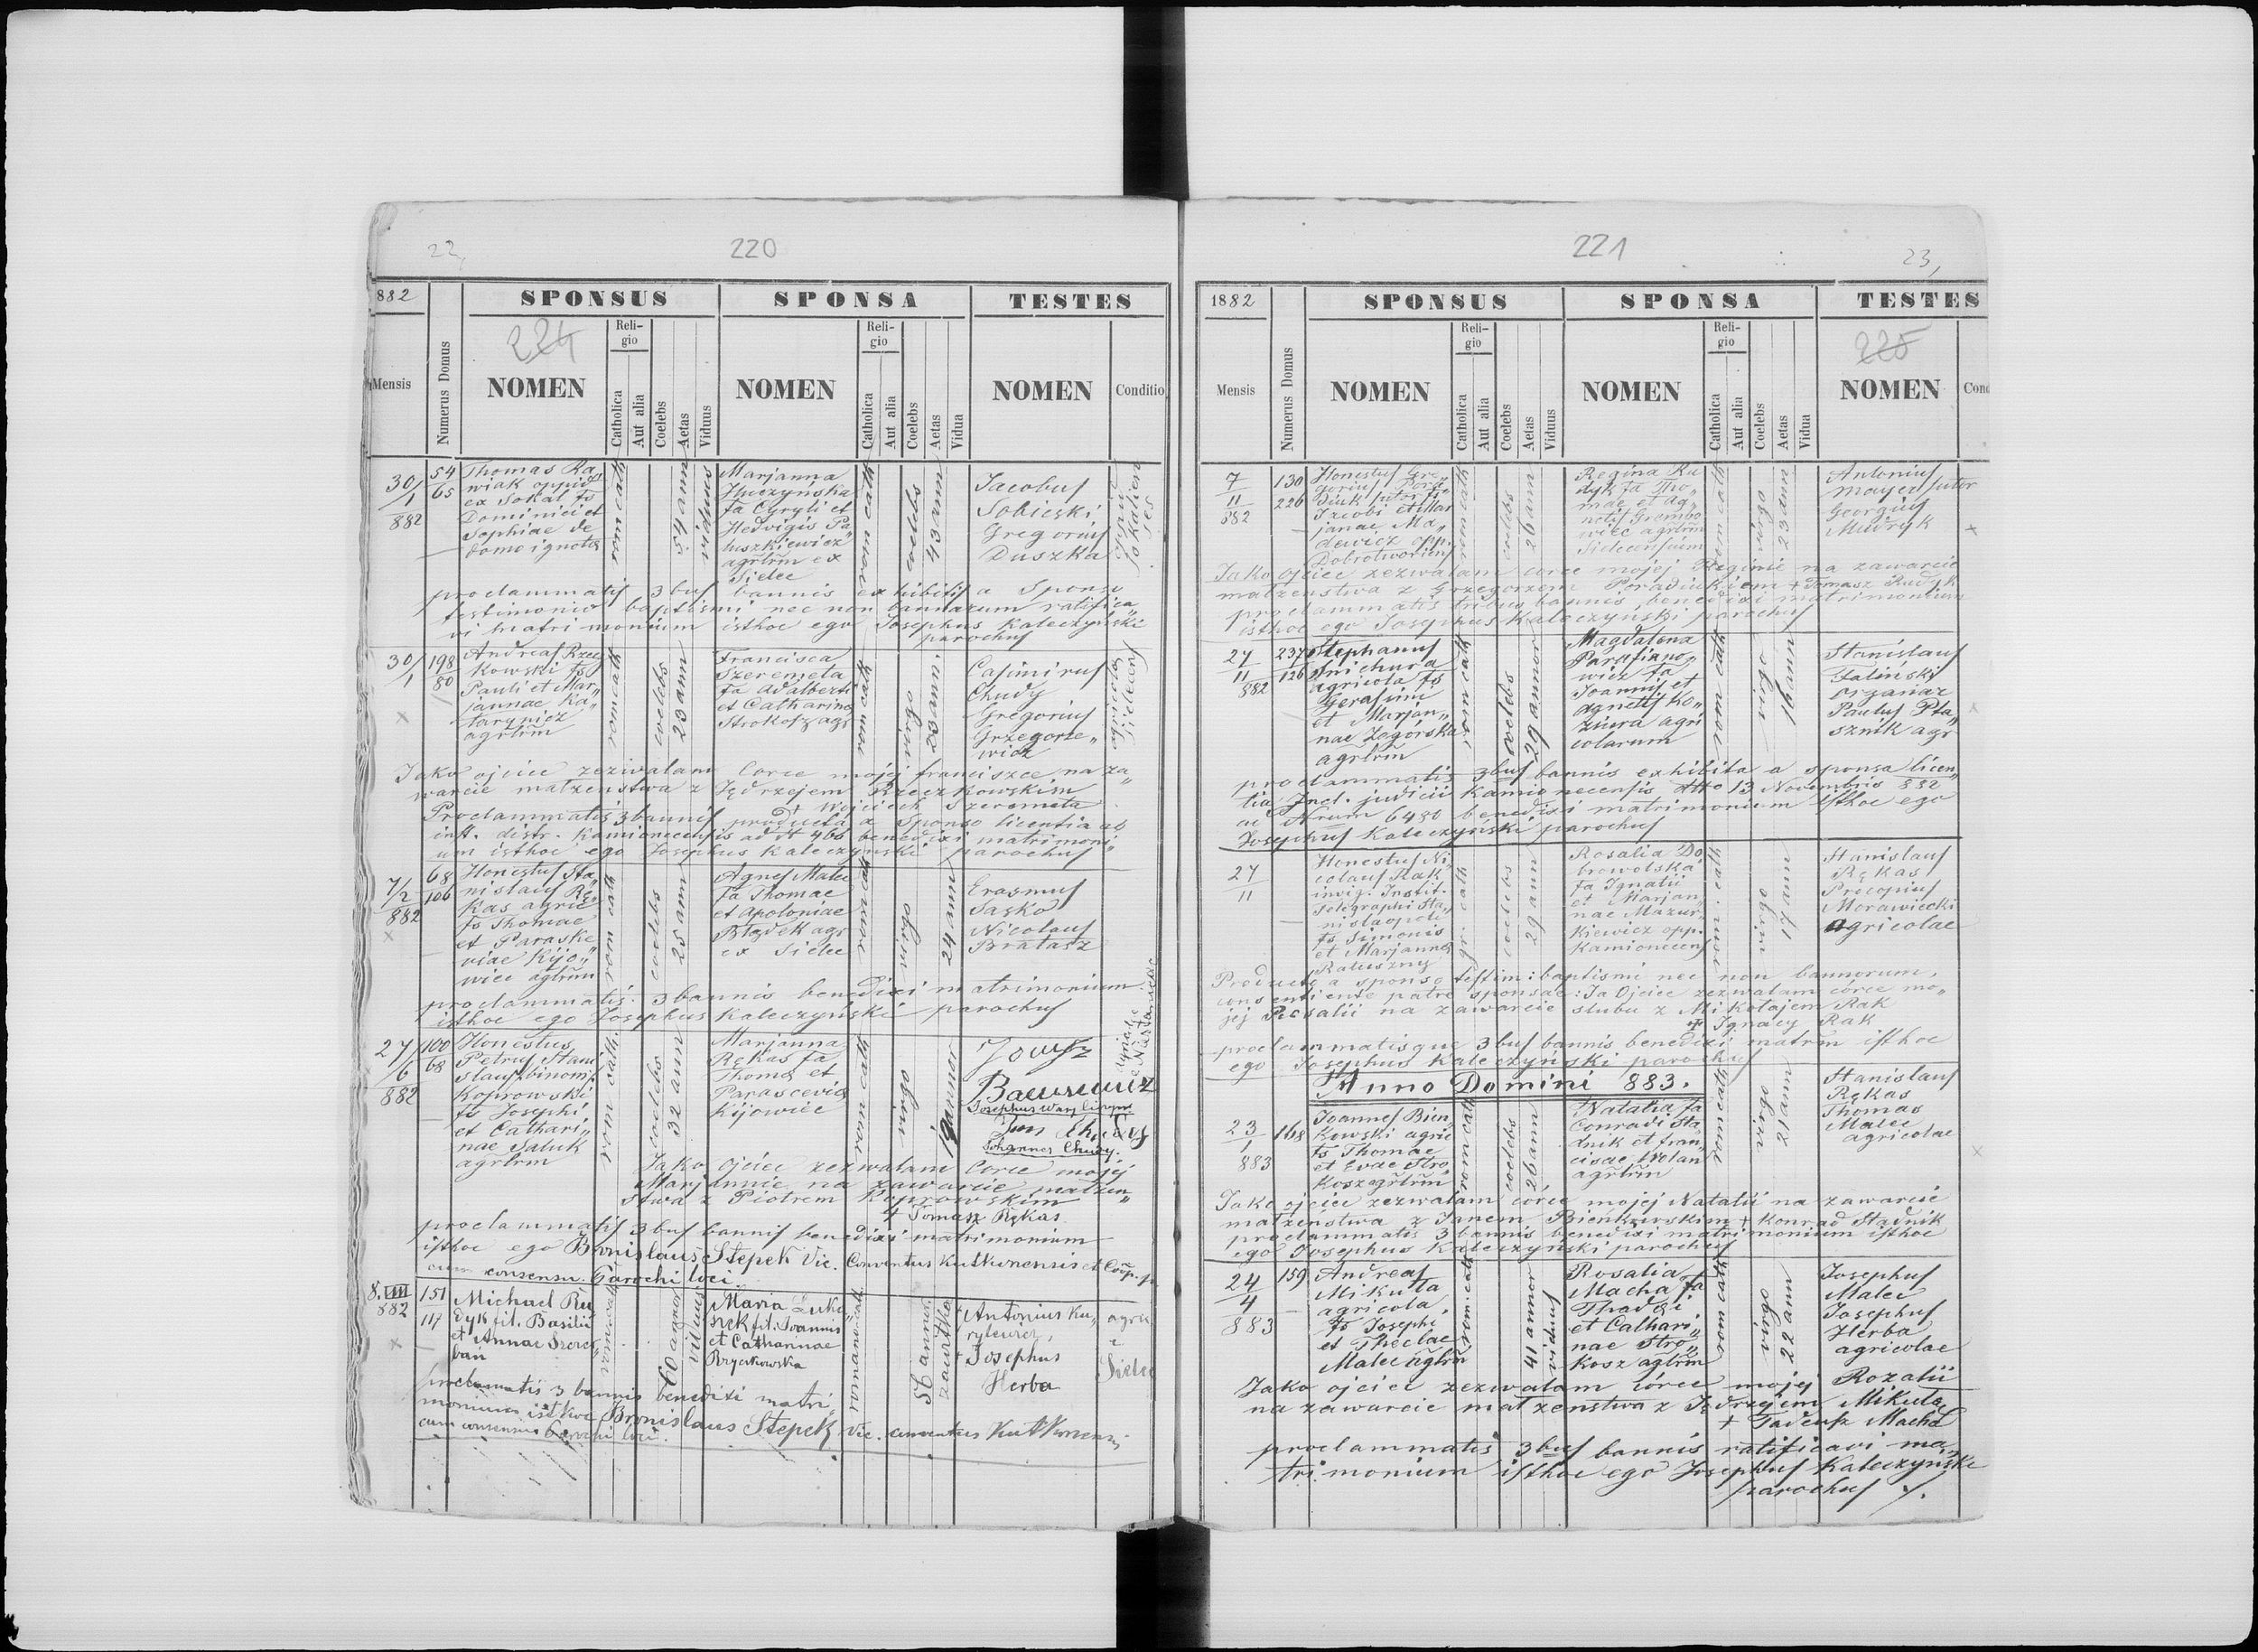 22,
220
882
SPONSUS
SPONSA
TESTES
224
Mensis
Numerus Domus
NOMEN
Religio
Catholica
Aut alia
Coelebs
Aetas
Viduus
NOMEN
Religio
Catholica
Aut alia
Coelebs
Aetas
Vidua
NOMEN
Conditio
30/1 882
54
65
Thomas Ra
wiak oppid
ex Sokal fs
Dominici et
Sophiae de
domo ignota
rom cath
54 ann
viduus
Marjanna
Huczyńska
fa Cyryli et
Hedvigis Pa„
luszkiewicz
agrlrm ex
Sielec
rom cath
coelebs
43 ann
Jacobus
Sobieski
Gregorius
Duszka
proclammatis 3bus bannis exhibitis a Sponso
testimonio baptismi nec non bannorum ratifica„
vi matrimonium isthoc ego Josephus Kaleczyński
parochus
30/1
198
80
Andreas Rzecz
kowski fs
Pauli et Mar„
jannae Ka„
tarynicz
agrlrm
rom cath
coelebs
23 ann
Francisca
Szeremeta
fa Adalberti
et Catharina
Strokosz agr
rom cath
virgo
23 ann
Casimirus
Chudy
Gregorius
Grzegorze„
wicz
agricolae
Sielecens
Jako ojciec zezwalam corce mojej franciszce na za„
warcie matzenstwa z Jędrzejem Rzeczkowskim
+ Wojciech Szeremeta
Proclammatis 3 bannis producta a Sponso licentia ab
inst. distr. Kamionecensis ad N 466 benedixi matrimoni„
um isthoc ego Josephus Kaleczynski parochus
7/2 882
68
106
Honestus Sta„
nislaus Rę„
kas agric
fs Thomae
et Paraske„
viae Kijo„
wiec agrlrm
rom cath
coelebs
25 ann
Agnes Malec
fa Thomae
et Apoloniae
Błądek agr
ex Sielec
rom cath
virgo
24 ann
Erasmus
Sasko
Nicolaus
Bratasz
proclammatis 3 bannis benedixi matrimonium
isthoc ego Josephus Kaleczyński parochus
27/6 882
100
68
Honestus
Petrus Stani
slaus binom.
Koprowski
fs Josephi
et Cathari„
nae Saluk
agrlrm
rom cath
coelebs
32 ann
Marjanna
Rękas fa
Thomæ et
Parascevia
Kijowiec
rom cath
virgo
19 annor
Józef
Jan Chudy
Johannes Chudy.
Jako ojciec zezwalam corce mojej
Marjannie na zawarcie matzen„
stwa z Piotrem Koprowskim
+ Tomasz Rękas
proclammatis 3bus bannis benedixi matrimonium
isthoc ego Bronislaus Stepek Vic. Conventus Kutkorensis et Coop.
cum consensu Parochi loci.
8.VIII 882
151
117
Michael Ru
dyk fil. Basilii
et Annae Szere„
ban
60 annor
viduus
Maria Luka
szek fil: Joannis
et Catharinae
Bryckowska
romano cath
56 annor
+ Antonius Ku„
rylewicz,
+ Josephus
Herba
agric
Sielec
proclamatis 3 bannis benedixi matri„
monium isthoc Bronislaus Stepek Vic. conventus Kutkorensis
cum consensu Parochi loci.
221
23,
1882
SPONSUS
SPONSA
TESTES
225
Mensis
Numerus Domus
NOMEN
Religio
Catholica
Aut alia
Coelebs
Aetas
Viduus
NOMEN
Religio
Catholica
Aut alia
Coelebs
Aetas
Vidua
NOMEN
Cond
7/11 882
130
226
Honestus Gre„
gorius Pora„
diuk sutor fs
Jacobi et Mar
janae Ma„
dewicz opp.
Dobrotworiens
rom cath
coelebs
26 ann
Regina Ru
dyk fa Tho„
mae et Ag„
netis Grembo
wiec agrlrm
Sielecensium
rom cath
virgo
23 ann
Antonius
Mayer sutor
Georgius
Mudryk
Jako ojciec zezwalam corce mojej Reginie na zawarcie
matzenstwa z Grzegorzem Poradiukiem + Tomasz Rudyk
proclammatis tribus bannis benedixi matrimonium
isthoc ego Josephus Kaleczyński parochus
27/11 882
237
126
Stephanus
Snichura
agricola fs
Gerasim
et Marjan„
nae Zagórska
agrlrm
rom cath
coelebs
29 annor
Magdalena
Parafiano„
wicz fa
Joannis et
Agnetis Ko„
ziura agri
colarum
rom cath
virgo
16 ann
Stanislaus
Faliński
organar
Paulus Pta„
sznik agr
proclammatis 3bus bannis exhibita a sponsa licen„
tia Incl. judicii Kamionecensis dtto 13 Novembris 882
ad Nrum 6480 benedixi matrimonium isthoc ego
Josephus Kaleczyński parochus
27/11
Honestus Ni„
colaus Rak
invig. Instit.
Telegraphi Sta„
nislaopoli
fs Simonis
et Marjanna
Kaluszny
gr. cath
coelebs
29 ann
Rosalia Do
browolska
fa Ignatii
et Marjan
nae Mazur„
kiewicz opp.
Kamionecens
rom. cath
virgo
17 ann
Stanislaus
Rękas
Procopius
Morawiecki
agricolae
Producto a sponso testim: baptismi nec non bannorum,
consentiente patre sponsae: Ja Ojciec zezwalam córce mo„
jej Rosalii na zawarcie slubu z Mikołajem Rak
+ Ignacy Rak
proclammatisque 3bus bannis benedixi matrm isthoc
ego Josephus Kaleczyński parochus
Anno Domini 883.
23/1 883
168
Joannes Bien„
kowski agric
fs Thomae
et Evae Stro
kosz agrlrm
rom cath
coelebs
26 ann
Natalia fa
Conradi Sta„
dnik et fran„
cisae Wolan
agrlrm
rom cath
virgo
21 ann
Stanislaus
Rękas
Thomas
Malec
agricolae
Jako ojciec zezwalam córce mojej Natalii na zawarcie
matzenstwa z Janem Bieńkowskim + Konrad Stadnik
proclammatis 3 bannis benedixi matrimonium isthoc
ego Josephus Kaleczyński parochus
24/4 883
159
Andreas
Mikutta
agricola,
fs Josephi
et Theclae
Malec agrlrm
rom. cath
41 annor
viduus
Rosalia
Macha fa
Thadæi
et Cathari„
nae Stro„
kosz agrlrm
rom cath
virgo
22 ann
Josephus
Malec
Josephus
Herba
agricolae
Jako ojciec zezwalam córce mojej Rozalii
na zawarcie matzenstwa z Jędrzejem Mikuta
+ Tadeusz Macha
proclammatis 3bus bannis ratificavi ma„
trimonium isthoc ego Josephus Kaleczyński
parochus